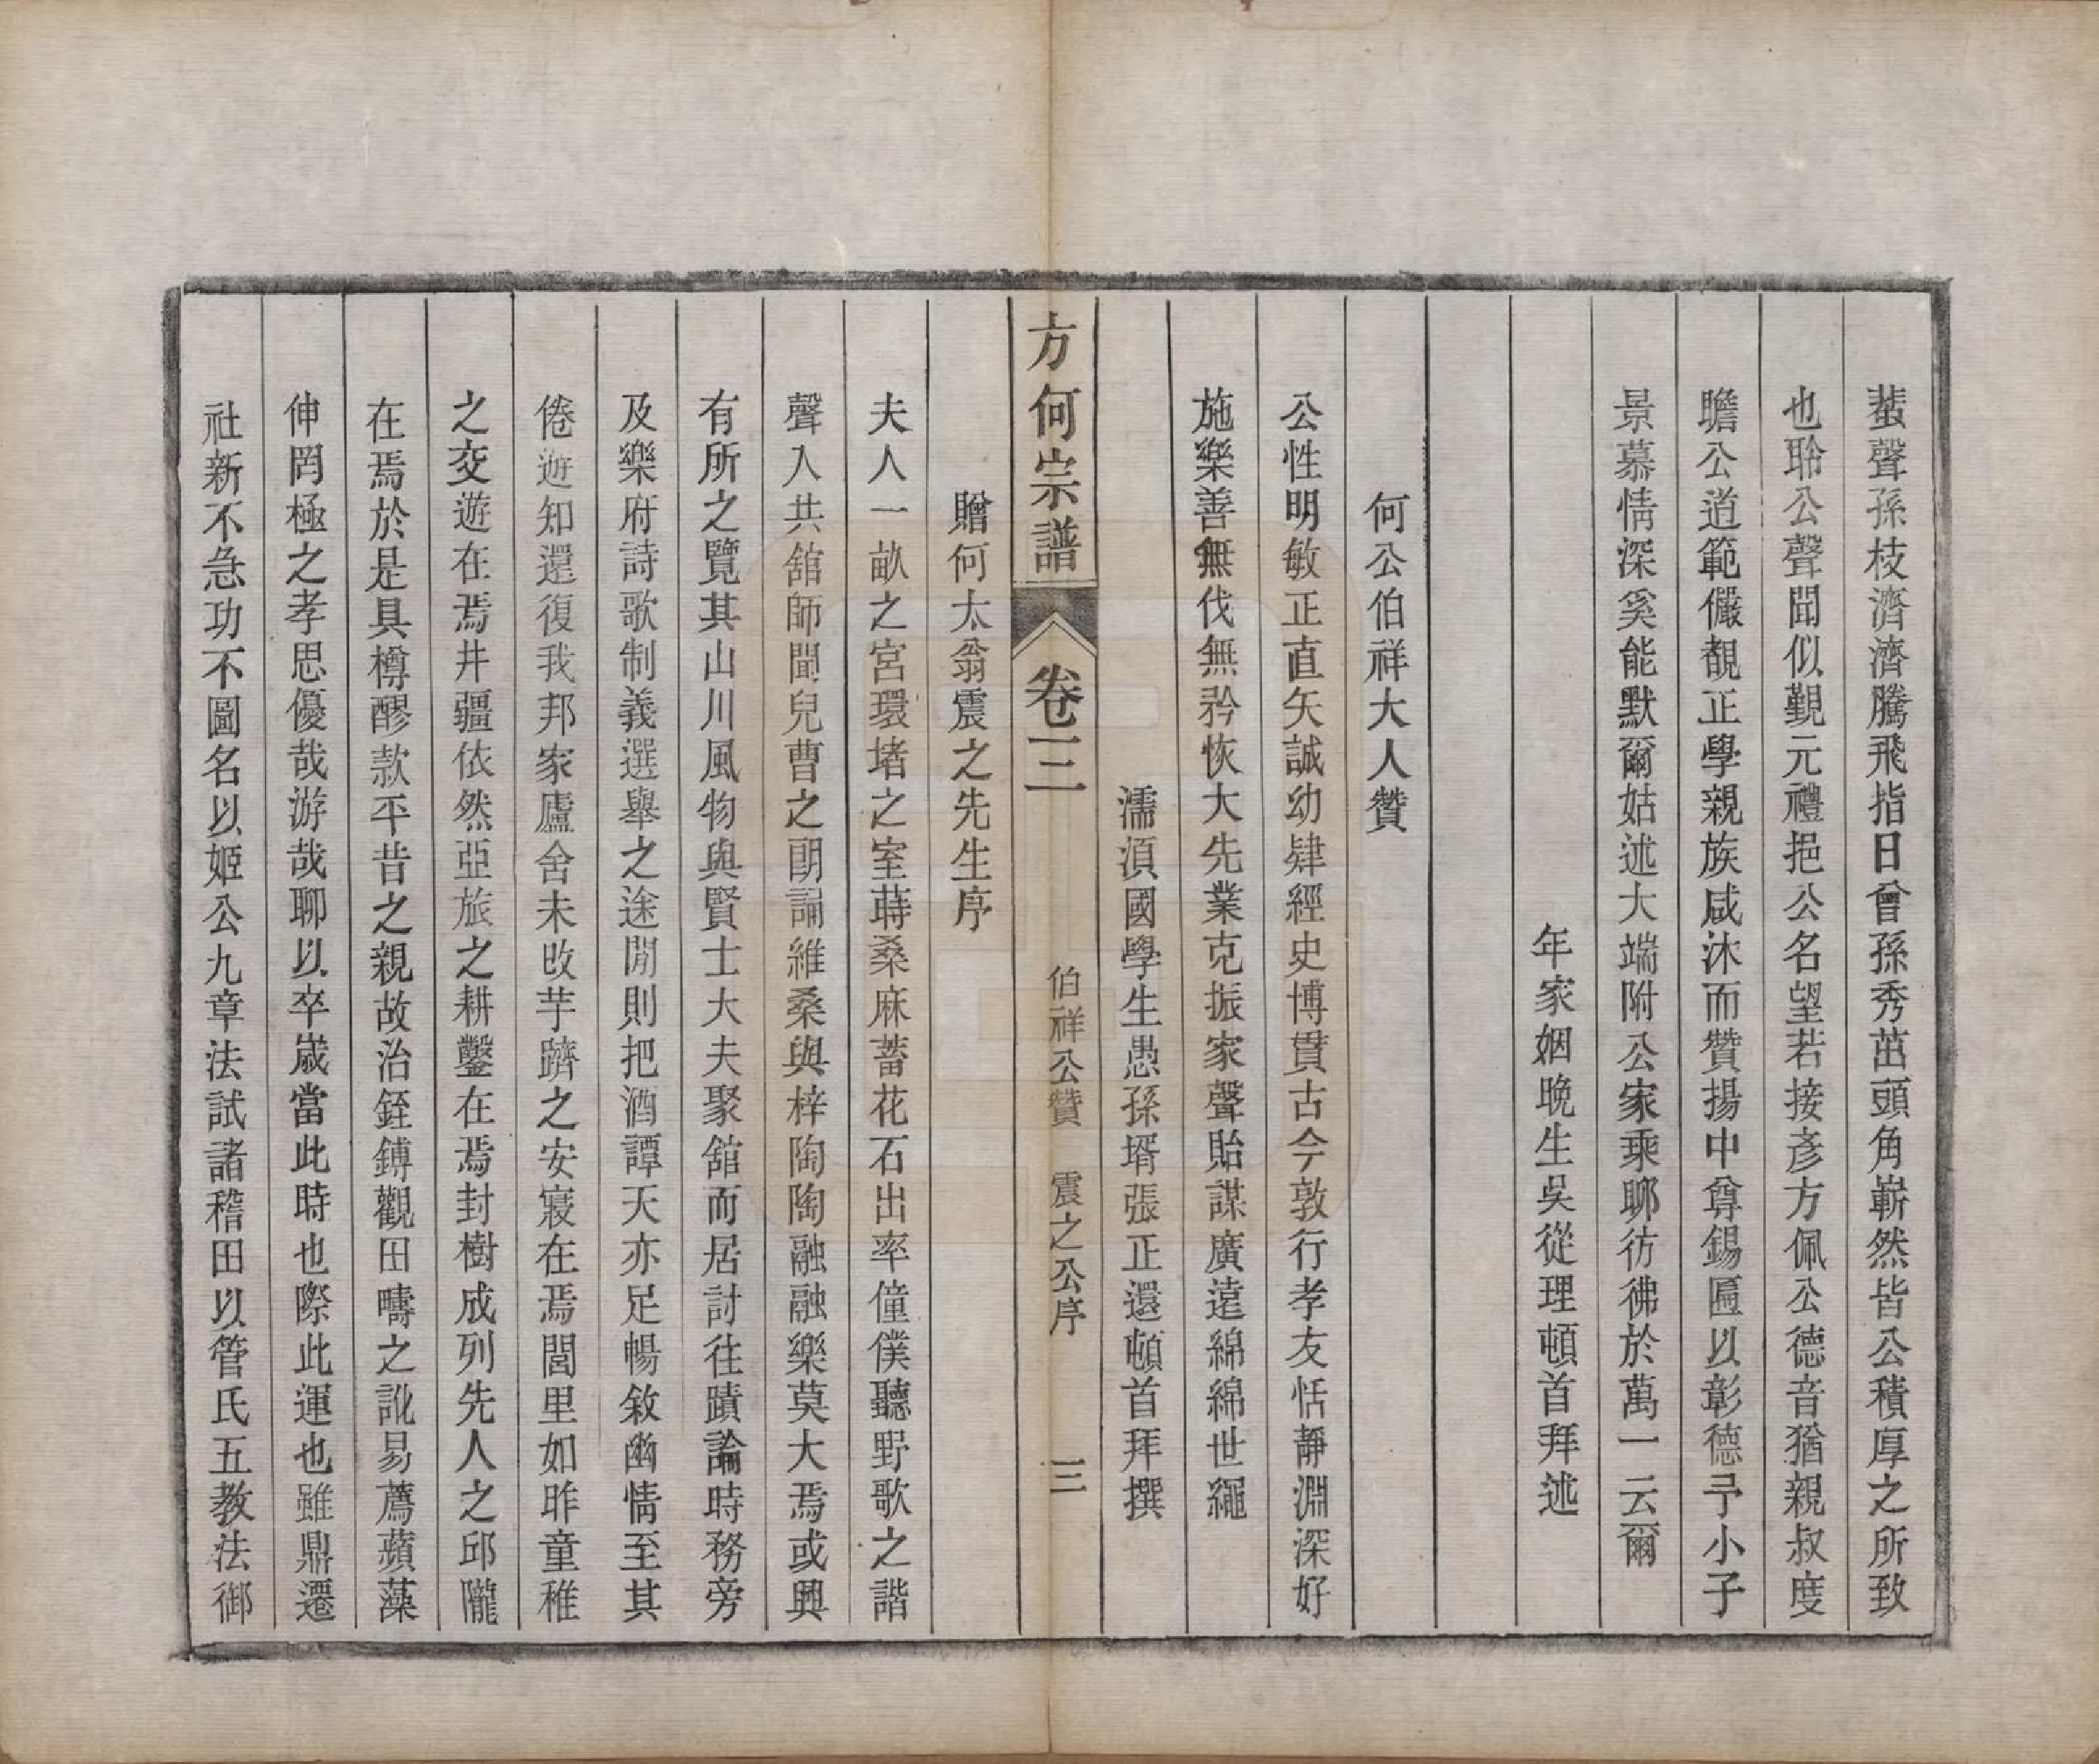 蜚聲孫枝濟濟騰飛指日曾孫秀茁頭角嶄然皆公積厚之所致
也聆公聲聞似覲元禮挹公名望若接彥方佩公德音猶親叔度
瞻公道範儼覩正學親族咸沐而贊揚中尊錫匾以彰德予小子
景慕情深奚能默爾姑述大端附公家乘聊彷彿於萬一云爾
年家姻晚生吳從理頓首拜述
何公伯祥大人贊
公性明敏正直矢誠幼肄經史博貫古今敦行孝友恬靜淵深好
施樂善無伐無矜恢大先業克振家聲貽謀廣遠綿綿世繩
濡湏國學生愚孫壻張正還頓首拜撰
方何宗譜
卷三
伯祥公贊 震之公序
三
贈何太翁震之先生序
夫人一畝之宮環堵之室蒔桑麻蓄花石出率僮僕聽野歌之諧
聲入共舘師聞兒曹之朗誦維桑與梓陶陶融融樂莫大焉或興
有所之覽其山川風物與賢士大夫聚舘而居討往蹟論時務旁
及樂府詩歌制義選舉之途閒則把酒譚天亦足暢敘幽情至其
倦遊知還復我邦家廬舍未改芋躋之安寢在焉閭里如昨童稚
之交遊在焉井疆依然亞旅之耕鑿在焉封樹成列先人之邱隴
在焉於是具樽醪款平昔之親故治銍鎛觀田疇之訛易薦蘋藻
伸罔極之孝思優哉游哉聊以卒嵗當此時也際此運也雖鼎遷
社新不急功不圖名以姬公九章法試諸稽田以管氏五教法御